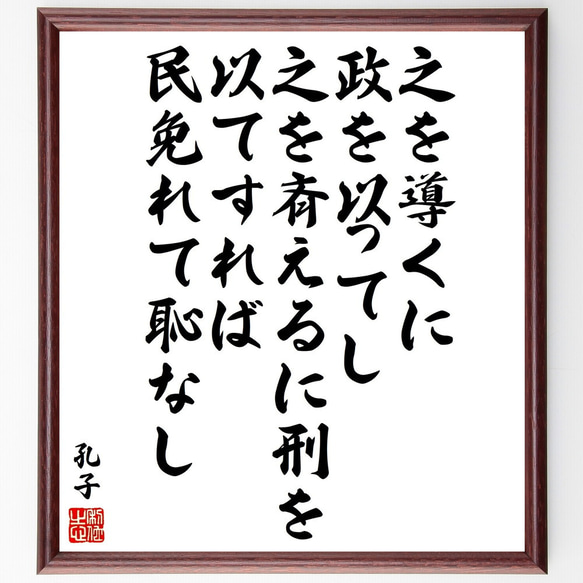 之を導くに
政を以ってし
之を斉えるに刑を
以てすれば
民免れて恥なし
孔子